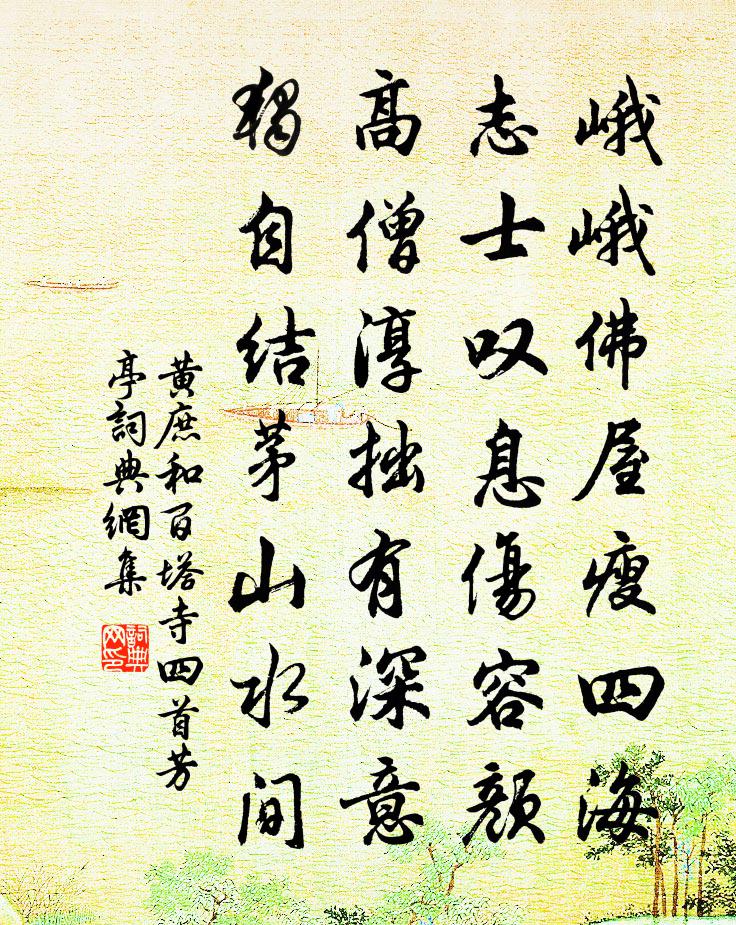 峨峨佛屋瘦四海
志士叹息傷容顔
高僧淳拙有深意
独自结茅山水间
黄庶和百塔寺四首芳
亭詞典網集
詞典
网印